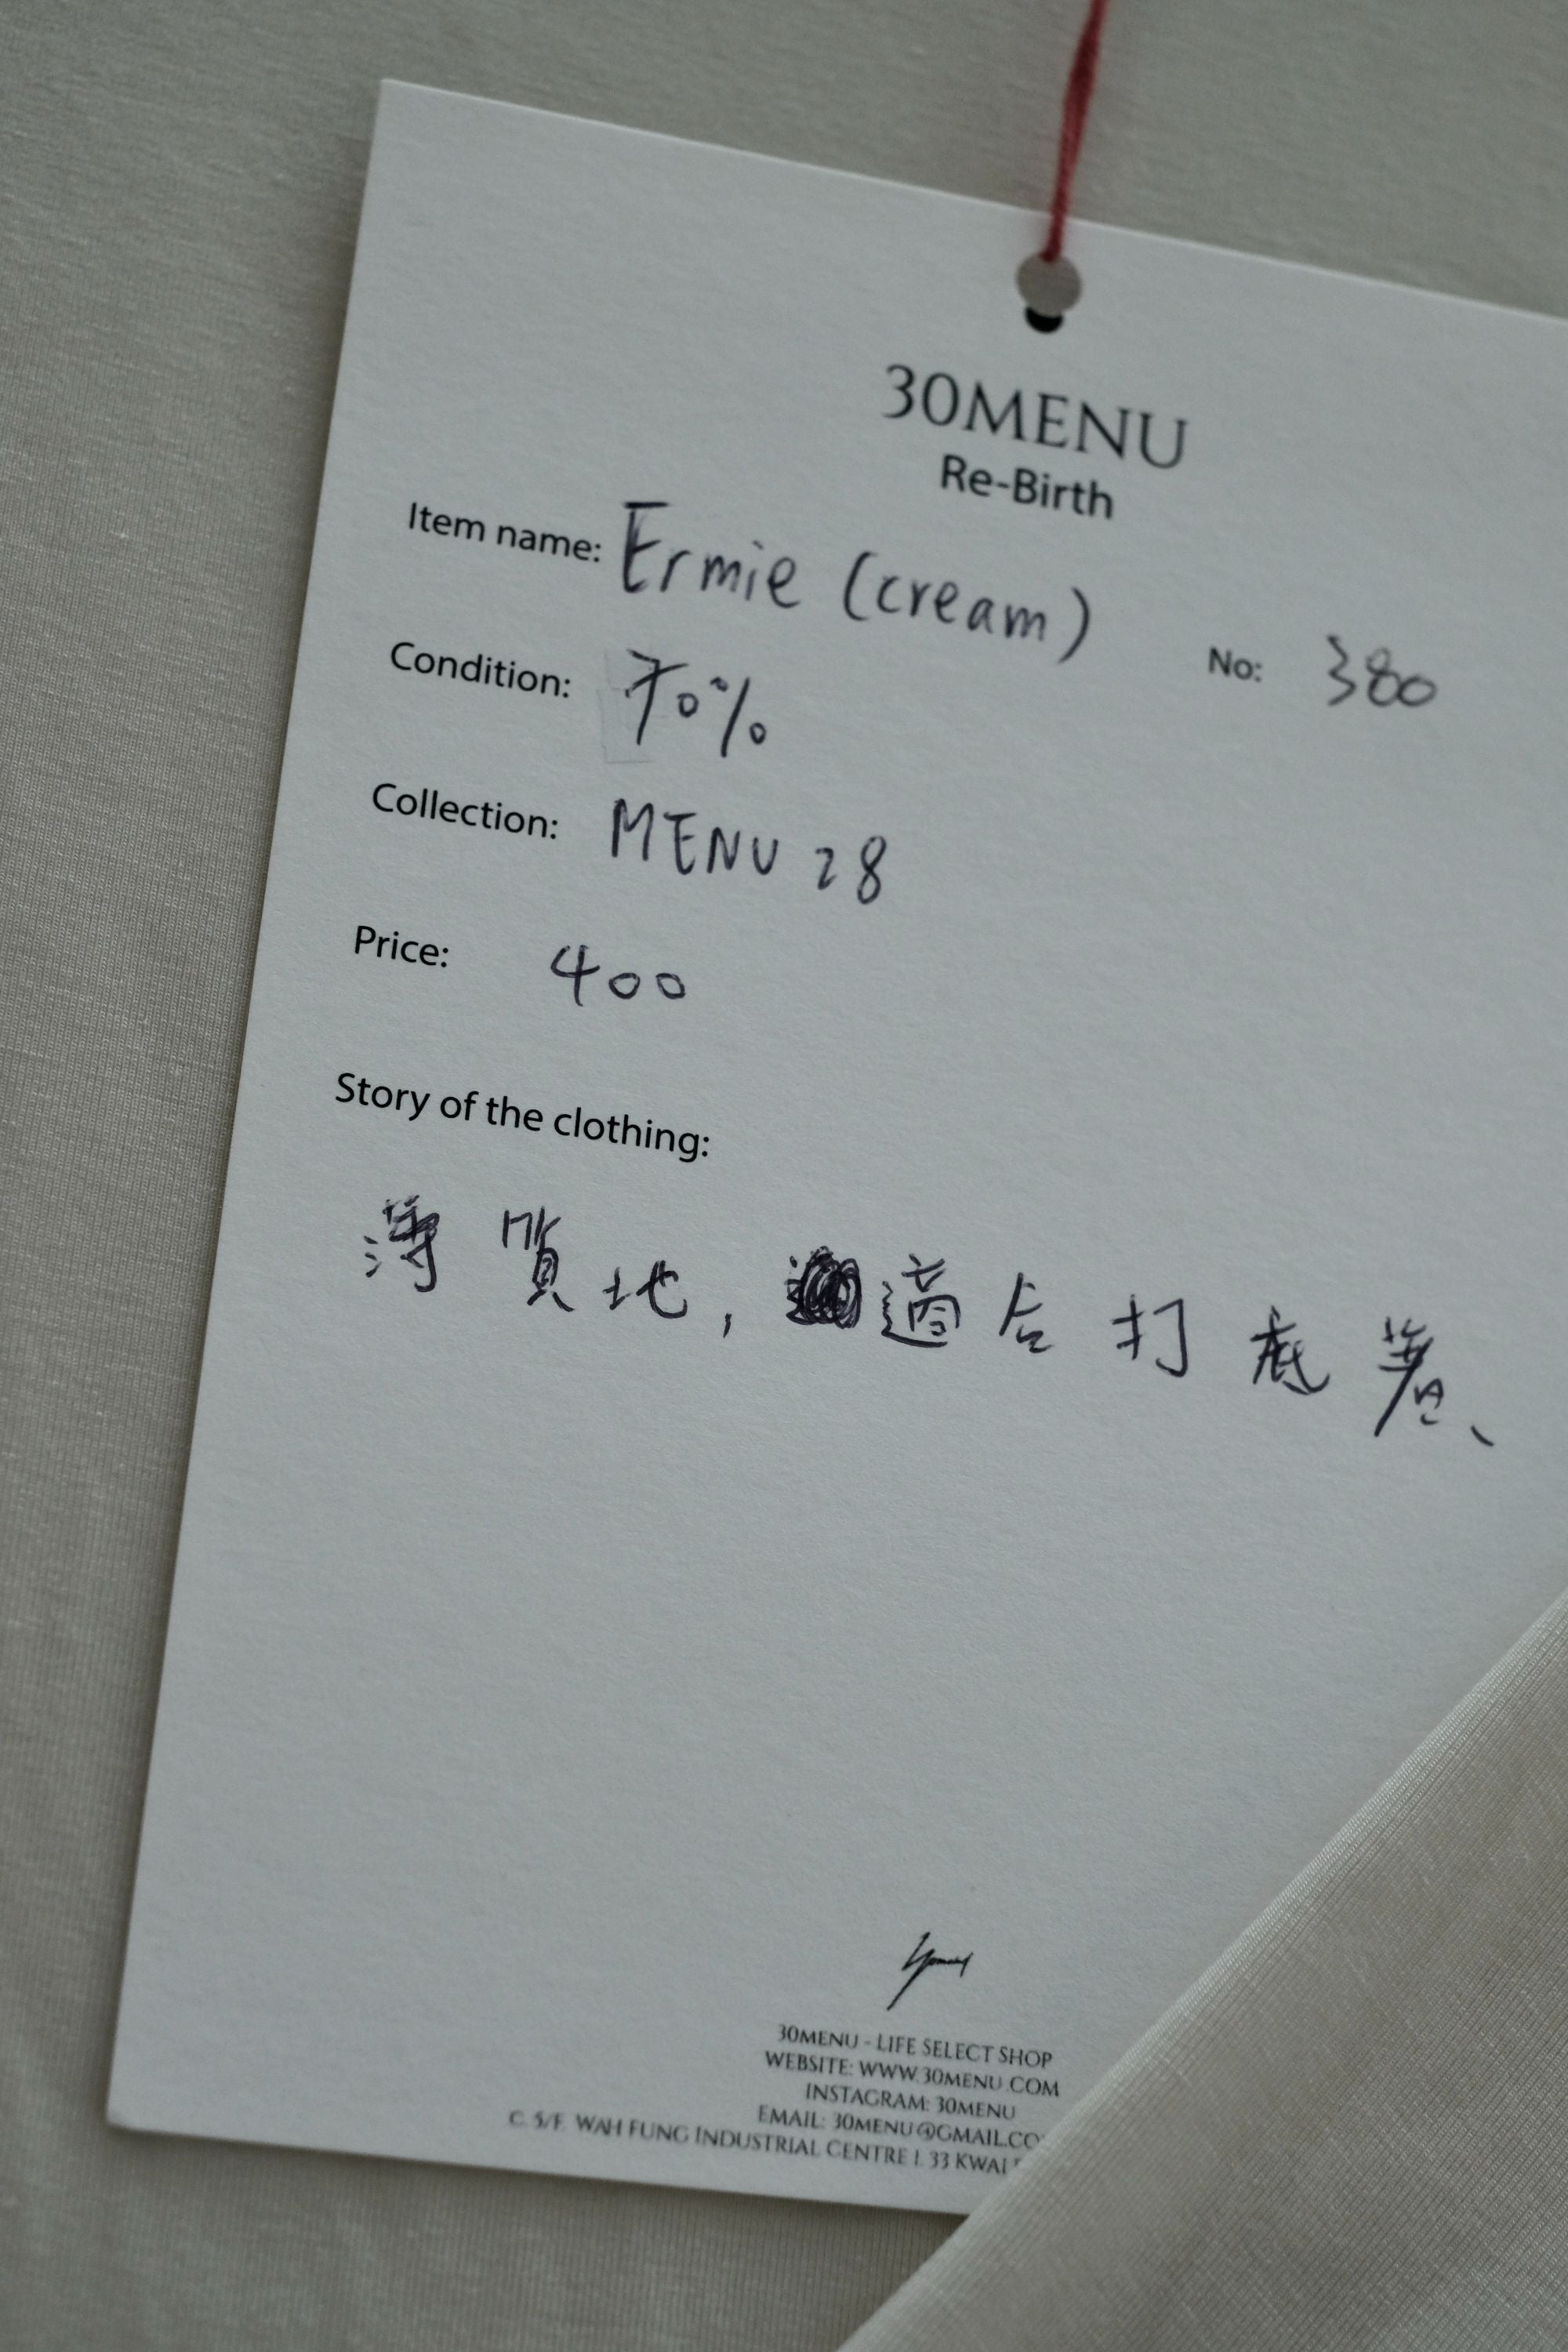 30MENU
Re-Birth
Item name: Ermie (cream)
No: 380
Condition: 70%
Collection: MENU 28
Price: 400
Story of the clothing:
薄質地, 適合打底著、
30MENU - LIFE SELECT SHOP
WEBSITE: WWW.30MENU.COM
INSTAGRAM: 30MENU
EMAIL: 30MENU@GMAIL.CO
C. 5/F. WAH FUNG INDUSTRIAL CENTRE 33 KWAI